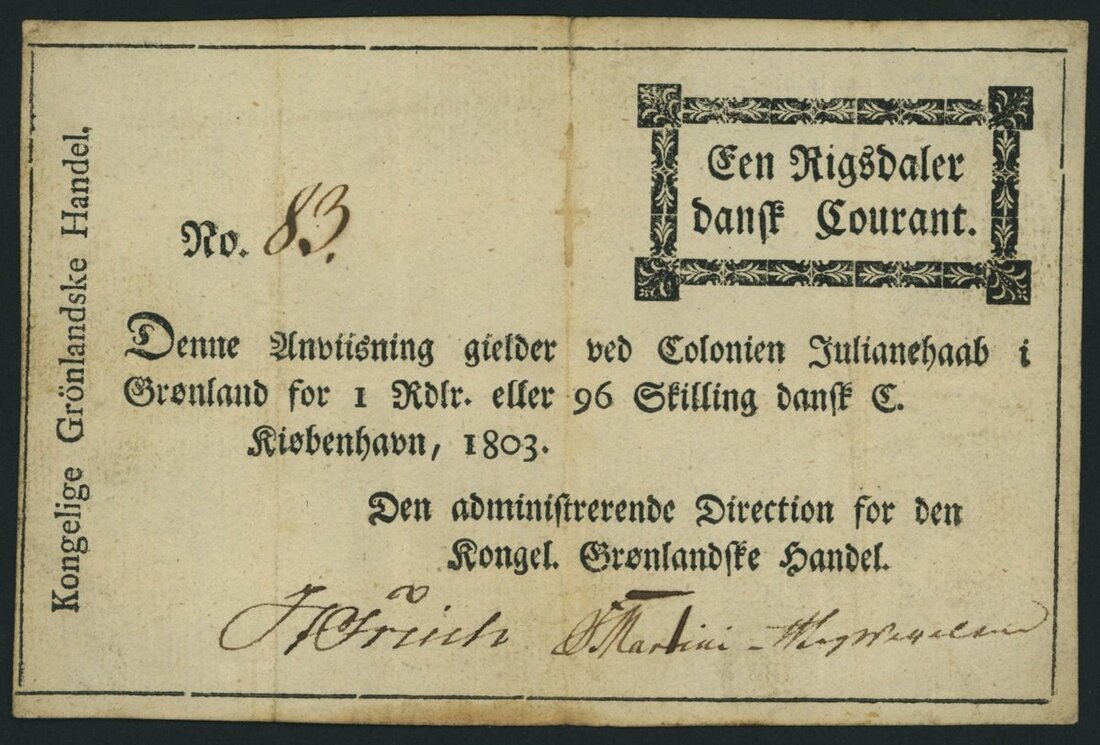 Kongelige Grönlandske Handel.
Een Rigsdaler
dansk Courant.
No. 83.
Denne Anviisning gielder ved Colonien Julianehaab i
Grønland for 1 Rdlr. eller 96 Skilling dansk C.
Kiøbenhavn, 1803.
Den administrerende Direction for den
Kongel. Grønlandske Handel.
Martini